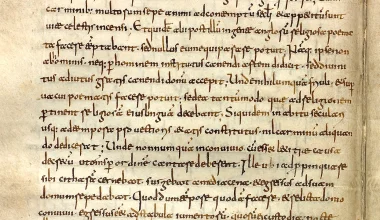 carminib; multorum sepe animi ad contemptum saeculi & appetitum sunt
uitae celestis accensi. Et quidem & alii post illum in gente anglorum religiosa poema
ta facere temptabant sed nullus eum equiparare potuit. Namq; ipse non
ab hominib; neq; per hominem institutus canendi artem didicit. sed diuini
tus adiutus gratis canendi donum accepit. Unde nihil umquam friuoli & sup
uacui poematis facere potuit. sed ea tantummodo quae ad religionem
pertinent religiosam eius linguam decebant. Siquidem in habitu seculari
usq; ad tempora prouectioris &atis constitutus. nil carminum aliquan
do didicerat. Unde nonnumquam in conuiuio cum ess& l&itiae causa
decr&um ut omnes per ordinem cantare deberent. Ille ubi adppinquare
sibi citharam cernebat. surgebat a media cena & egressus ad suam
domum repedabat. Quod dum tempore quodam facer& & relicta domo
conuiuii egressus ess& ad stabula iumentorum quorum ei custodia